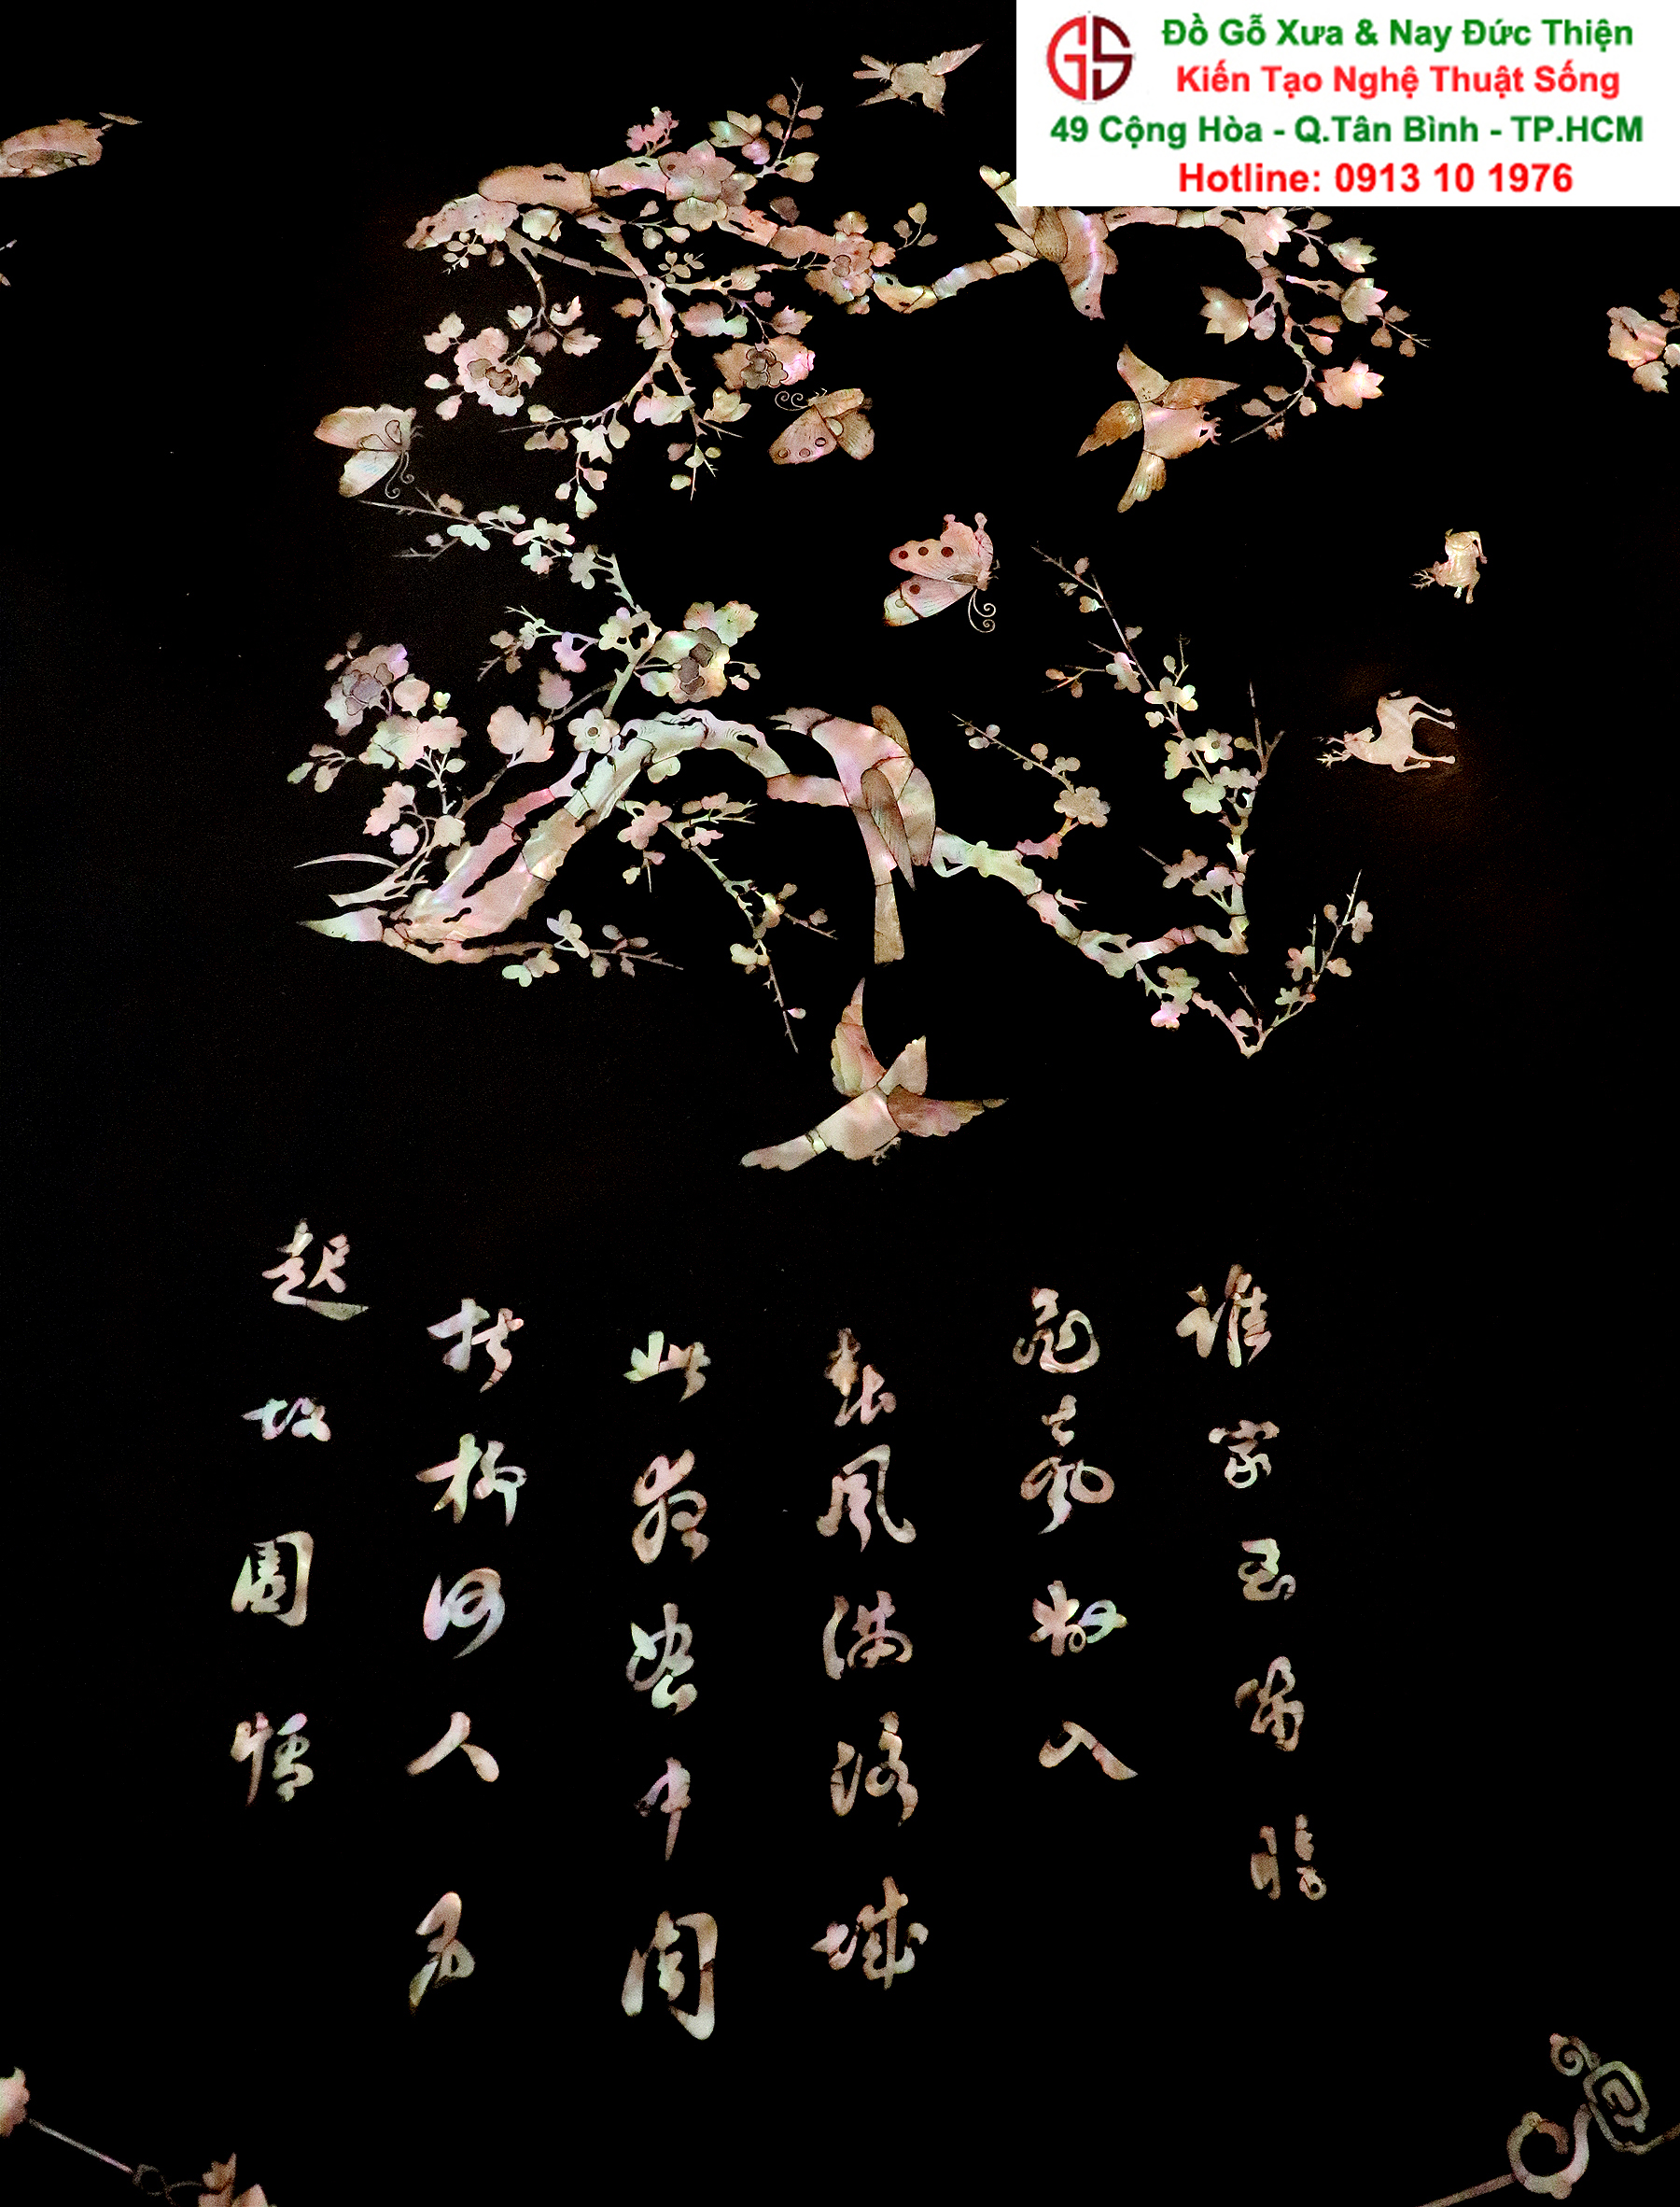 Đồ Gỗ Xưa & Nay Đức Thiện
Kiến Tạo Nghệ Thuật Sống
49 Cộng Hòa - Q.Tân Bình - TP.HCM
Hotline: 0913 10 1976
誰家玉笛暗
飛聲散入
春風滿洛城
此夜曲中聞
折柳何人不
起故園情